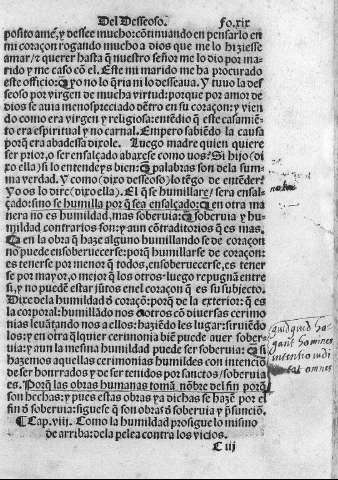 Del Desseoso. Fo.xix
posito amẽ, y dessee mucho: cõtinuando en pensarlo en
mi coraçon rogando mucho a dios que me lo hiziesse
amar/ z querer hasta q̃ nuestro señor me lo dio por ma-
rido y me caso cõ el. Este mi marido me ha procurado
este officio: q̃ yo no lo q̃ria ni lo desseaua. Y tuuo la des
seoso por virgen de mucha virtud: porque por amor de
dios se auia menospreciado dẽtro en su coraçon: y vien
do como era virgen y religiosa: entẽdio q̃ este casamiẽ-
to era espiritual y no carnal. Empero sabiẽdo la causa
porq̃ era abadessa dixole. Luego madre quien quiere
ser prior, o ser ensalçado abaxese como vos: Si hijo (di
xo ella) si lo entendeys bien: q̃ palabras son dela sum-
ma verdad. Y como (dixo desseoso) lo tẽgo de entẽder?
Yo os lo dire (dixo ella). El q̃ se humillare/ sera ensal-
çado: sino se humilla por q̃ sea ensalçador: q̃ en otra ma
nera nõ es humildad, mas soberuia: q̃ soberuia y hu-
mildad contrarios son: y aun cõtraditorios q̃ es mas.
q̃ en la obra q̃ haze alguno humillando se de coraçon
no puede ensoberuecerse: porq̃ humillarse de coraçon:
es tenerse por menor q̃ todos, ensoberuecerse, es tener
se por mayor, o mejor q̃ los otros: luego repugna entre
si, y no puedẽ estar jũtos enel coraçon q̃ es su subjecto.
Dixe dela humildad ð coraçõ: porq̃ de la exterior: q̃ es
la corporal: humillãdo nos a otros cõ diuersas cerimo
nias leuãtando nos a ellos: haziẽdo les lugar: siruiẽdo
los: y en otra q̃lquier cerimonia biẽ puede auer sober-
uia: y aun la mesma humildad puede ser soberuia: q̃ si
hazemos aquellas cerimonias humildes con intenciõ
de ser honrrados y de ser tenidos por sanctos/ soberuia
es. Porq̃ las obras humanas tomã nõbre del fin porq̃
son hechas: y pues estas obras ya dichas se hazẽ por el
fin ð soberuia: siguese q̃ son obras ð soberuia y p̃sunciõ.
¶ Cap.viij. Como la humildad prosigue lo mismo
de arriba: dela pelea contra los vicios.
C iij
quidquid ha-
gant homines
intentio iudi
cat omnes